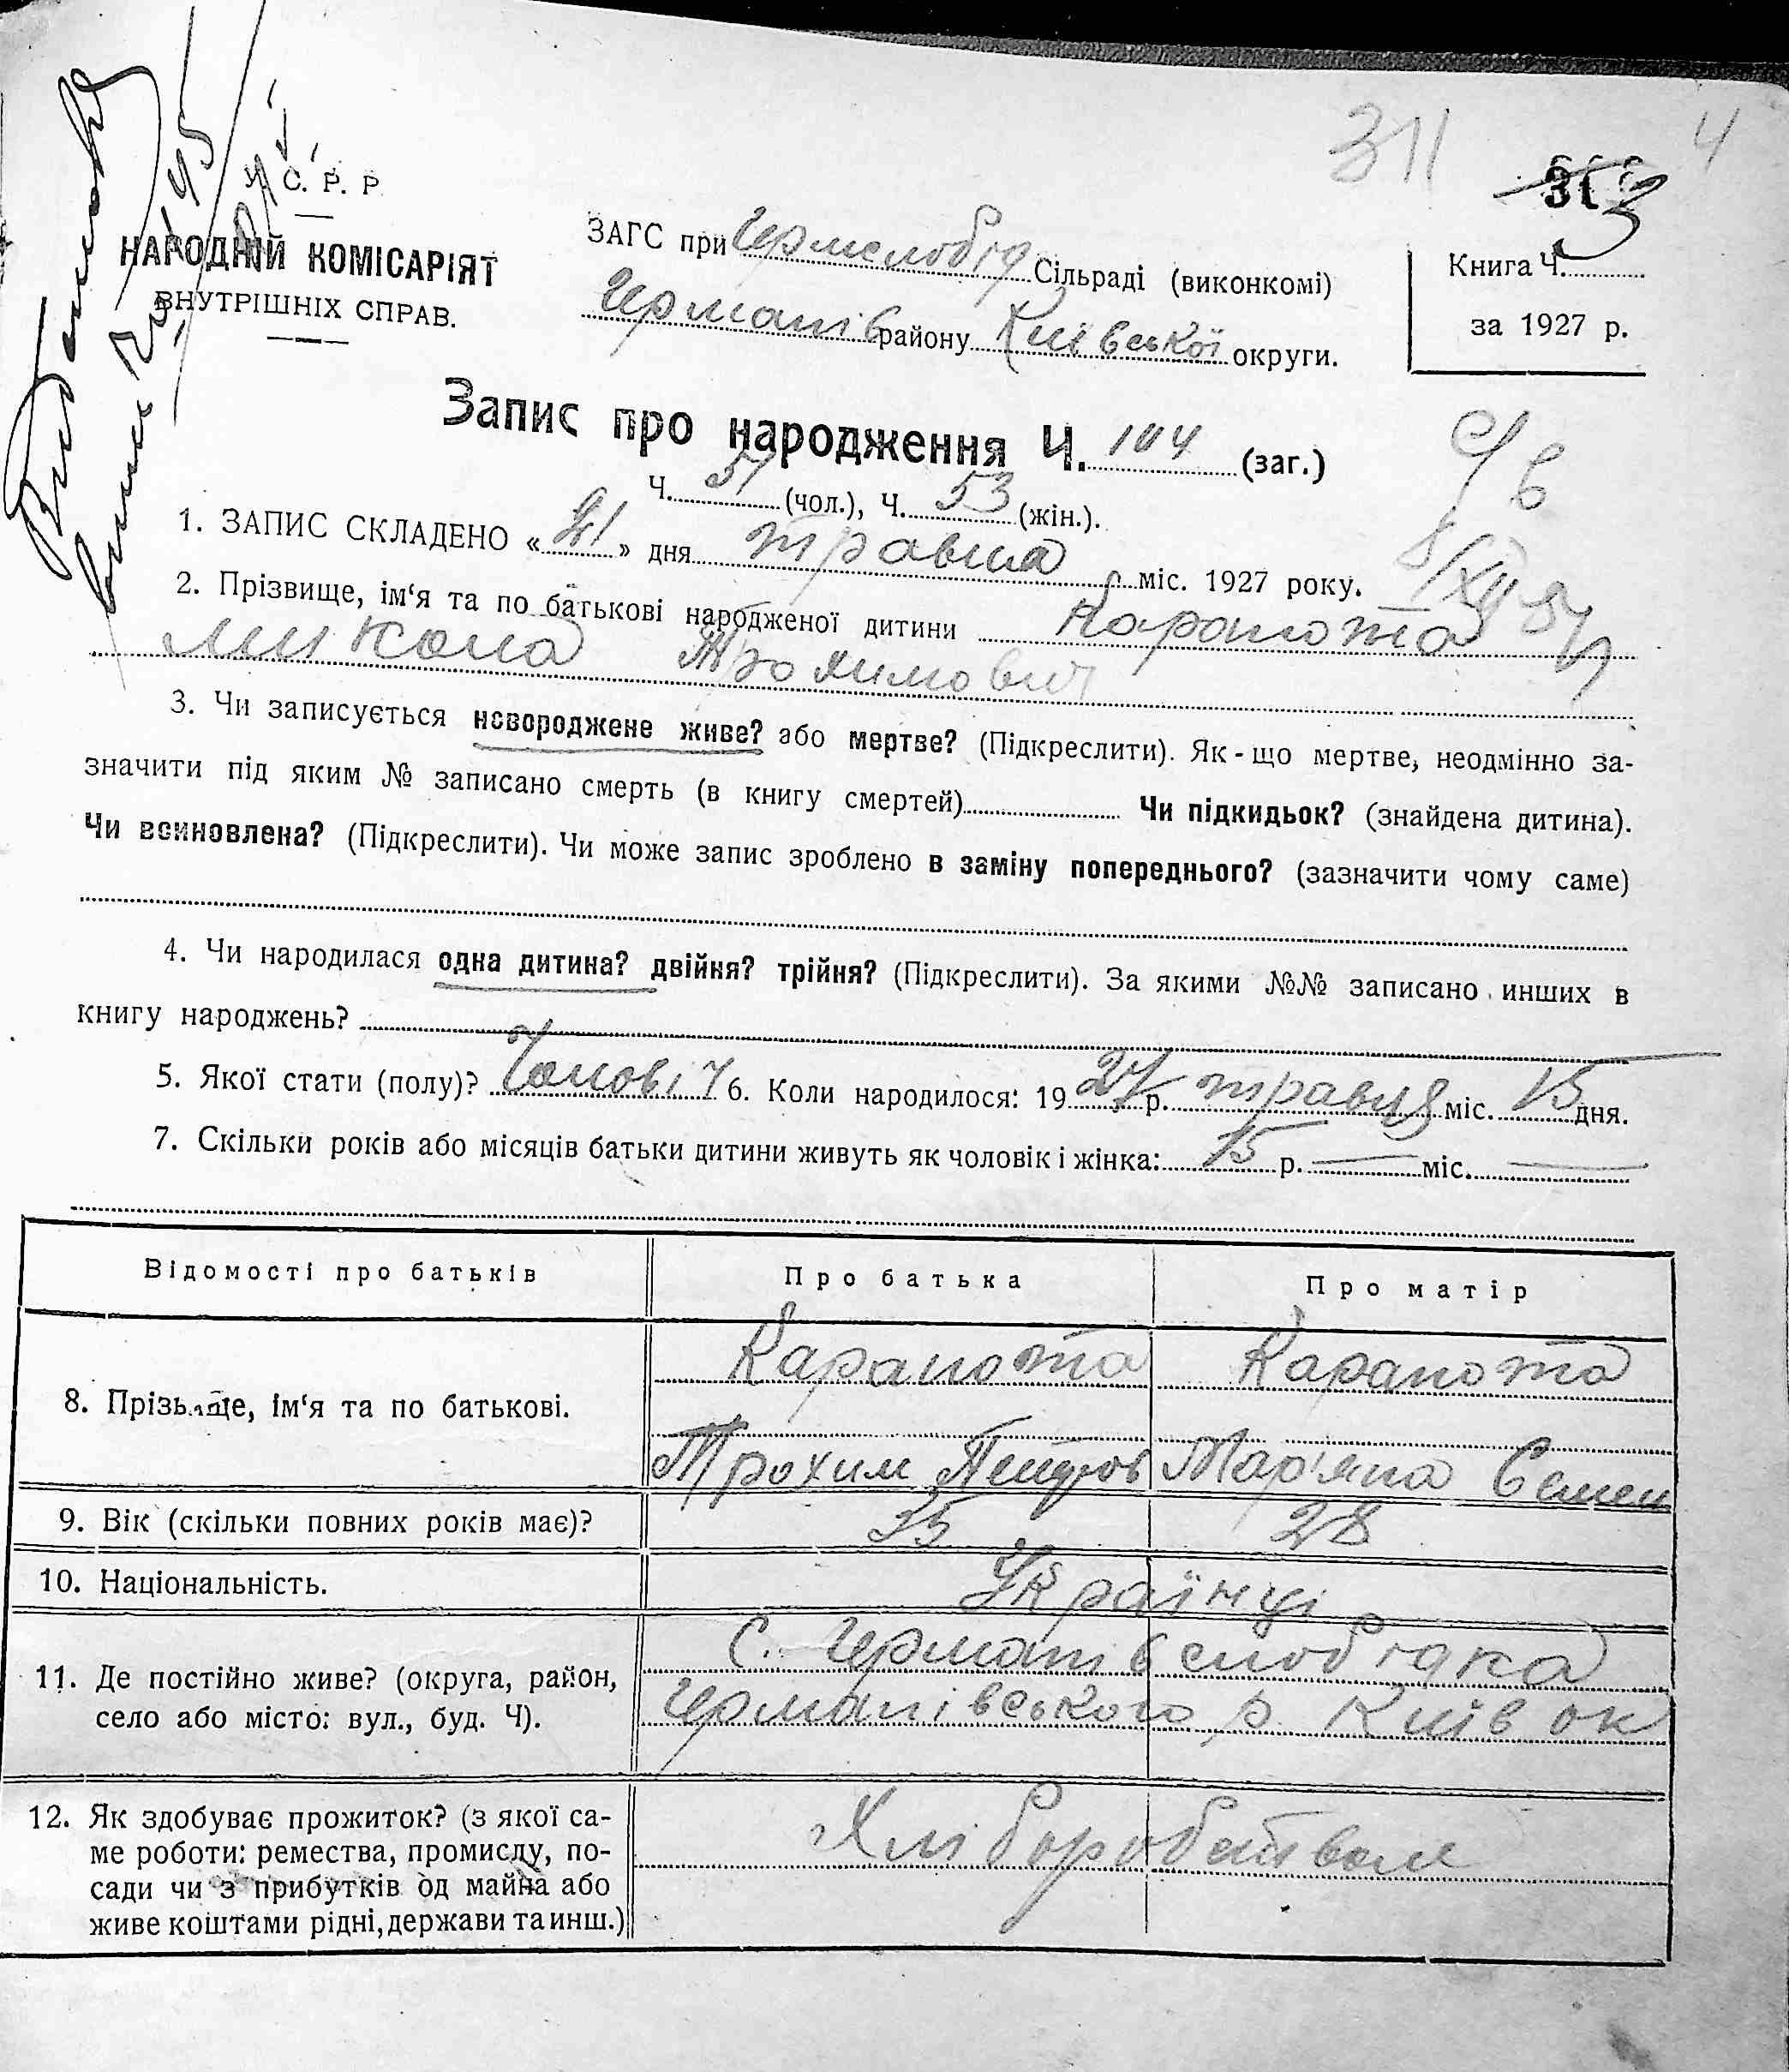 311
4
3
У. С. Р. Р.
НАРОДНІЙ КОМІСАРІЯТ
ВНУТРІШНІХ СПРАВ.
ЗАГС при Гермслобід Сільраді (виконкомі)
Германів району Київської округи.
Книга Ч.
за 1927 р.
Запис про народження Ч. 104 (заг.)
Ч. 51 (чол.), Ч. 53 (жін.).
1. ЗАПИС СКЛАДЕНО «21» дня травня міс. 1927 року.
2. Прізвище, ім‘я та по батькові народженої дитини Карапота
Микола Трохимович
3. Чи записується новороджене живе? або мертве? (Підкреслити). Як-що мертве, неодмінно за-
значити під яким № записано смерть (в книгу смертей) Чи підкидьок? (знайдена дитина).
Чи всиновлена? (Підкреслити). Чи може запис зроблено в заміну попереднього? (зазначити чому саме)
4. Чи народилася одна дитина? двійня? трійня? (Підкреслити). За якими №№ записано инших в
книгу народжень?
5. Якої стати (полу)? Чоловіч 6. Коли народилося: 1927 р. травця міс. 15 дня.
7. Скільки років або місяців батьки дитини живуть як чоловік і жінка: 15 р. — міс. —
Відомості про батьків Про батька Про матір
8. Прізьвище, ім‘я та по батькові. Карапота Карапота
Трохим Петров Мар'яна Семен
9. Вік (скільки повних років має)? 35 28
10. Національність. Українці
11. Де постійно живе? (округа, район,
село або місто: вул., буд. Ч).
с. Германів слобідка
Германівського р. Київ ок
12. Як здобуває прожиток? (з якої са-
ме роботи: ремества, промислу, по-
сади чи з прибутків од майна або
живе коштами рідні, держави та инш.)
Хліборобством